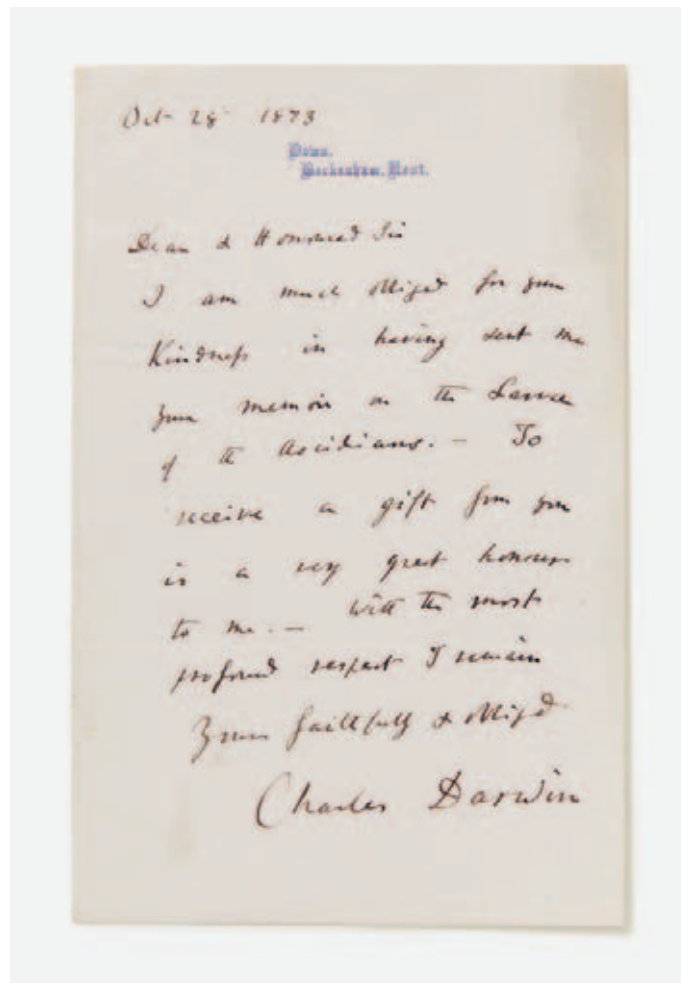 Oct 28 1873
Down,
Beckenham, Kent.
Dear & Honoured Sir
I am much obliged for your
Kindness in having sent me
your memoir on the Larvæ
of the Ascidians. — To
receive a gift from you
is a very great honour
to me. — With the most
profound respect I remain
Yours faithfully & obliged
Charles Darwin